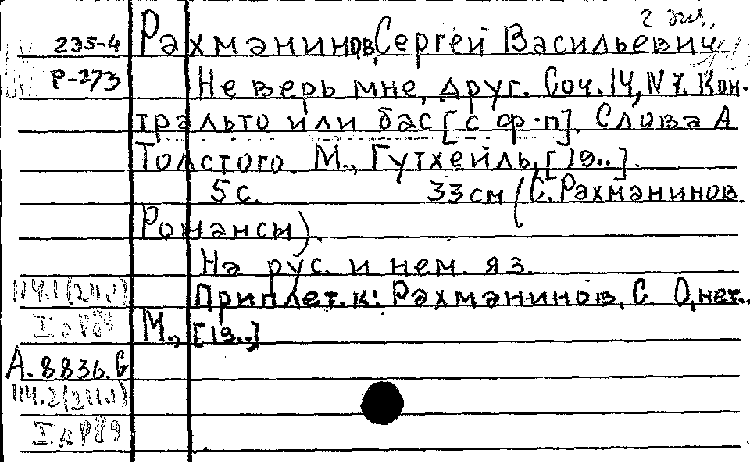 2 экз.
235-4 Рахманинов, Сергей Васильевич
Р-273 Не верь мне, друг. Соч. 14, N 7. Кон-
тральто или бас [с ф-п]. Слова А
Толстого М., Гутхейль, [19..].
5 с. 33 см (С. Рахманинов.
Романсы).
На рус. и нем. яз.
Приплет. к: Рахманинов, С. О, нет..
М., [19..]
А. 8836. G